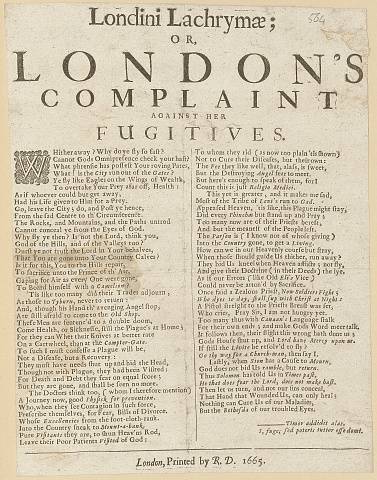 564
Londini Lachrymæ;
OR,
LONDON'S
COMPLAINT
AGAINST HER
FUGITIVES.
WHither away? Why do ye fly so fast?
Cannot Gods Omnipresence check your hast?
What phrensie has possest Your roving Pates,
What! is the City run out of the Gates?
Ye fly like Eagles on the Wings of Wealth,
To overtake Your Prey afar off, Health:
As if whoever could but get away,
Had his Life given to Him for a Prey.
Go, leave the City, do, and Post ye hence,
From the sad Center to its Circumference.
The Rocks, and Mountains, and the Paths untrod
Cannot conceal ye from the Eyes of God.
Why fly ye then? Is not the Lord, think you,
God of the Hills, and of the Valleys too?
Durst ye not trust the Lord in Your
That You are gone into Your Country
Is it for this, You to the Hills repair,
To sacrifice unto the Prince of th' Air,
Gaping for Air as every One were
To Board himself with a Cameleon?
'Tis like too many and their Trades adjourn;
As those to Tyburn, ne're to return:
And, though the Hand th' avenging Angel stop,
Are still afraid to come to the old Shop.
These Men are fearent'd to a double doom,
Come Health, or Sickness, still the Plague's at Home;
For they can Whet their Knives at better rate
On a Cartwheel, than at the Compter-Gate.
To such I must confess a Plague will be,
Not a Disease, but a Recovery:
They must have needs shut up and hid the Head,
Though not with Plague, they had been Visited:
For Death and Debt they fear on equal score;
But they are poor, and shall be seen no more.
The Doctors think too, (whom I therefore mention)
A Journey now, good Physick for prevention.
Who, when they see Contagion in such force,
Prescribe themselves, for Fear, Bills of Divorce.
Whose Excellencies from the foot-cloth-rank,
Into the Country sneak to Mount-a-bank,
Pure Pissants they are, to shun Heav'ns Rod,
Leave their Poor Patients Visited of God;
To whom they rid (as now too plain 'tis shown)
Not to Cure their Diseases, but their own:
The Fee they like well, that, alass, is sweet,
But the Destroying Angel fear to meet.
But here's enough to speak of them, for I
Count this is just Religio Medici.
This yet is greater, and it makes me sad,
Most of the Tribe of Levi's run to Gad.
Aspersed Heav'ns, 'tis like, this Plague might stay,
Did every Phinehas but stand up and Pray:
Too many now are of their Priests bereft,
And but the meanest of the People left.
The Parson is (I know not of whose giving)
Into the Country gone, to get a Living.
How can we in our Heavenly course but stray,
When those should guide Us thither, run away?
They bid Us learn when Heaven afflicts; they fly,
And give their Doctrine (in their Deeds) the lye.
As if our Errors (like Old Elies Vice)
Could never be aton'd by Sacrifice.
Once bid a Zealous Priest, Now Soldiers Fight!
Who dyes to day, shall sup with Christ at Night:
A Pistol streight to the Priests Breast was set,
Who cries, Pray Sir, I am not hungry yet.
Too many thus with Canaan's Language stalk
For their own ends; and make Gods Word meer talk.
It follows then, their flight this wrong hath done us;
Gods House shut up, and Lord have Mercy upon us.
If still the Levite be resolv'd to fly;
Go thy way for a Church-man, then say I.
Lastly, when Sion has a Cause to Mourn,
God does not bid Us ramble, but return.
Thus Solomon has told Us in Times past,
He that does fear the Lord, does not make hast.
Then let us turn, and not our sins conceal,
That Hand that Wounded Us, can only heal:
Nothing can Cure Us of our Maladies,
But the Bethesda of our troubled Eyes.
Timor addidit alas,
I, fuge; sed poteris tutior esse domi.
London, Printed by R. D. 1665.